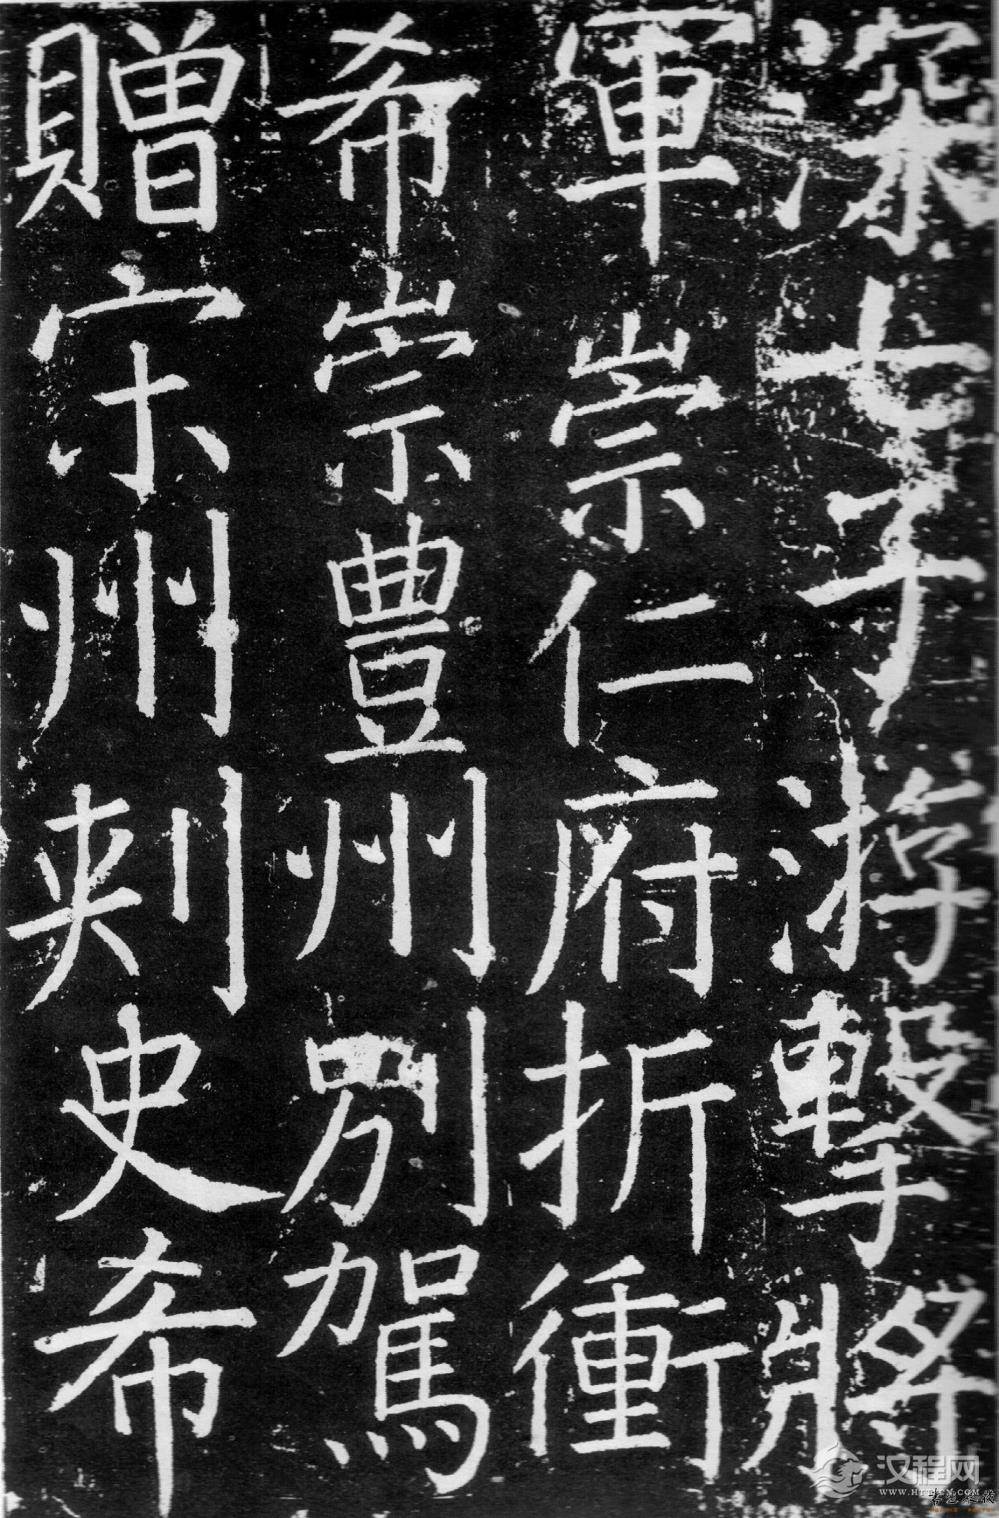 深七子游擊將
軍崇仁府折衝
希崇豊州別駕
贈宋州刾史希
汉程网
WWW.HTTPCN.COM